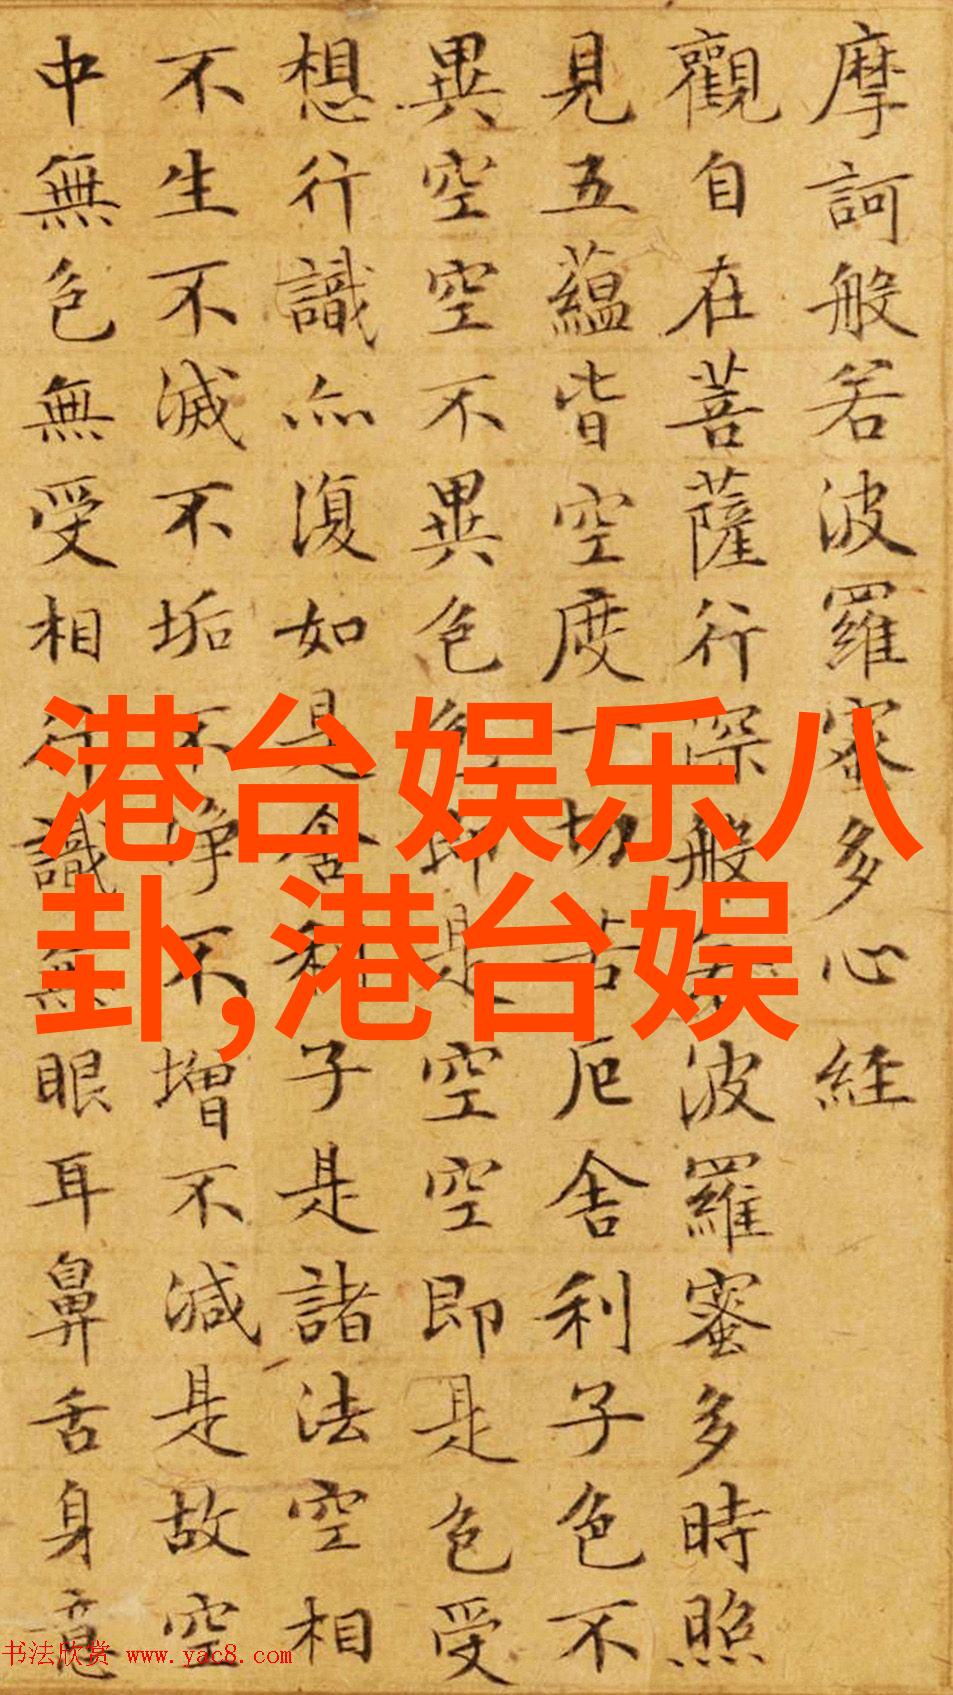 摩訶般若波羅蜜多心經
觀自在菩薩行深般若波羅蜜多時照
見五蘊皆空度一切苦厄舍利子色不
異空空不異色色即是空空即是色受
想行識亦復如是舍利子是諸法空相
不生不滅不垢不淨不增不減是故空
中無色無受相行識無眼耳鼻舌身意
港台娱乐八
卦,港台娱
书法欣赏 www.yac8.com